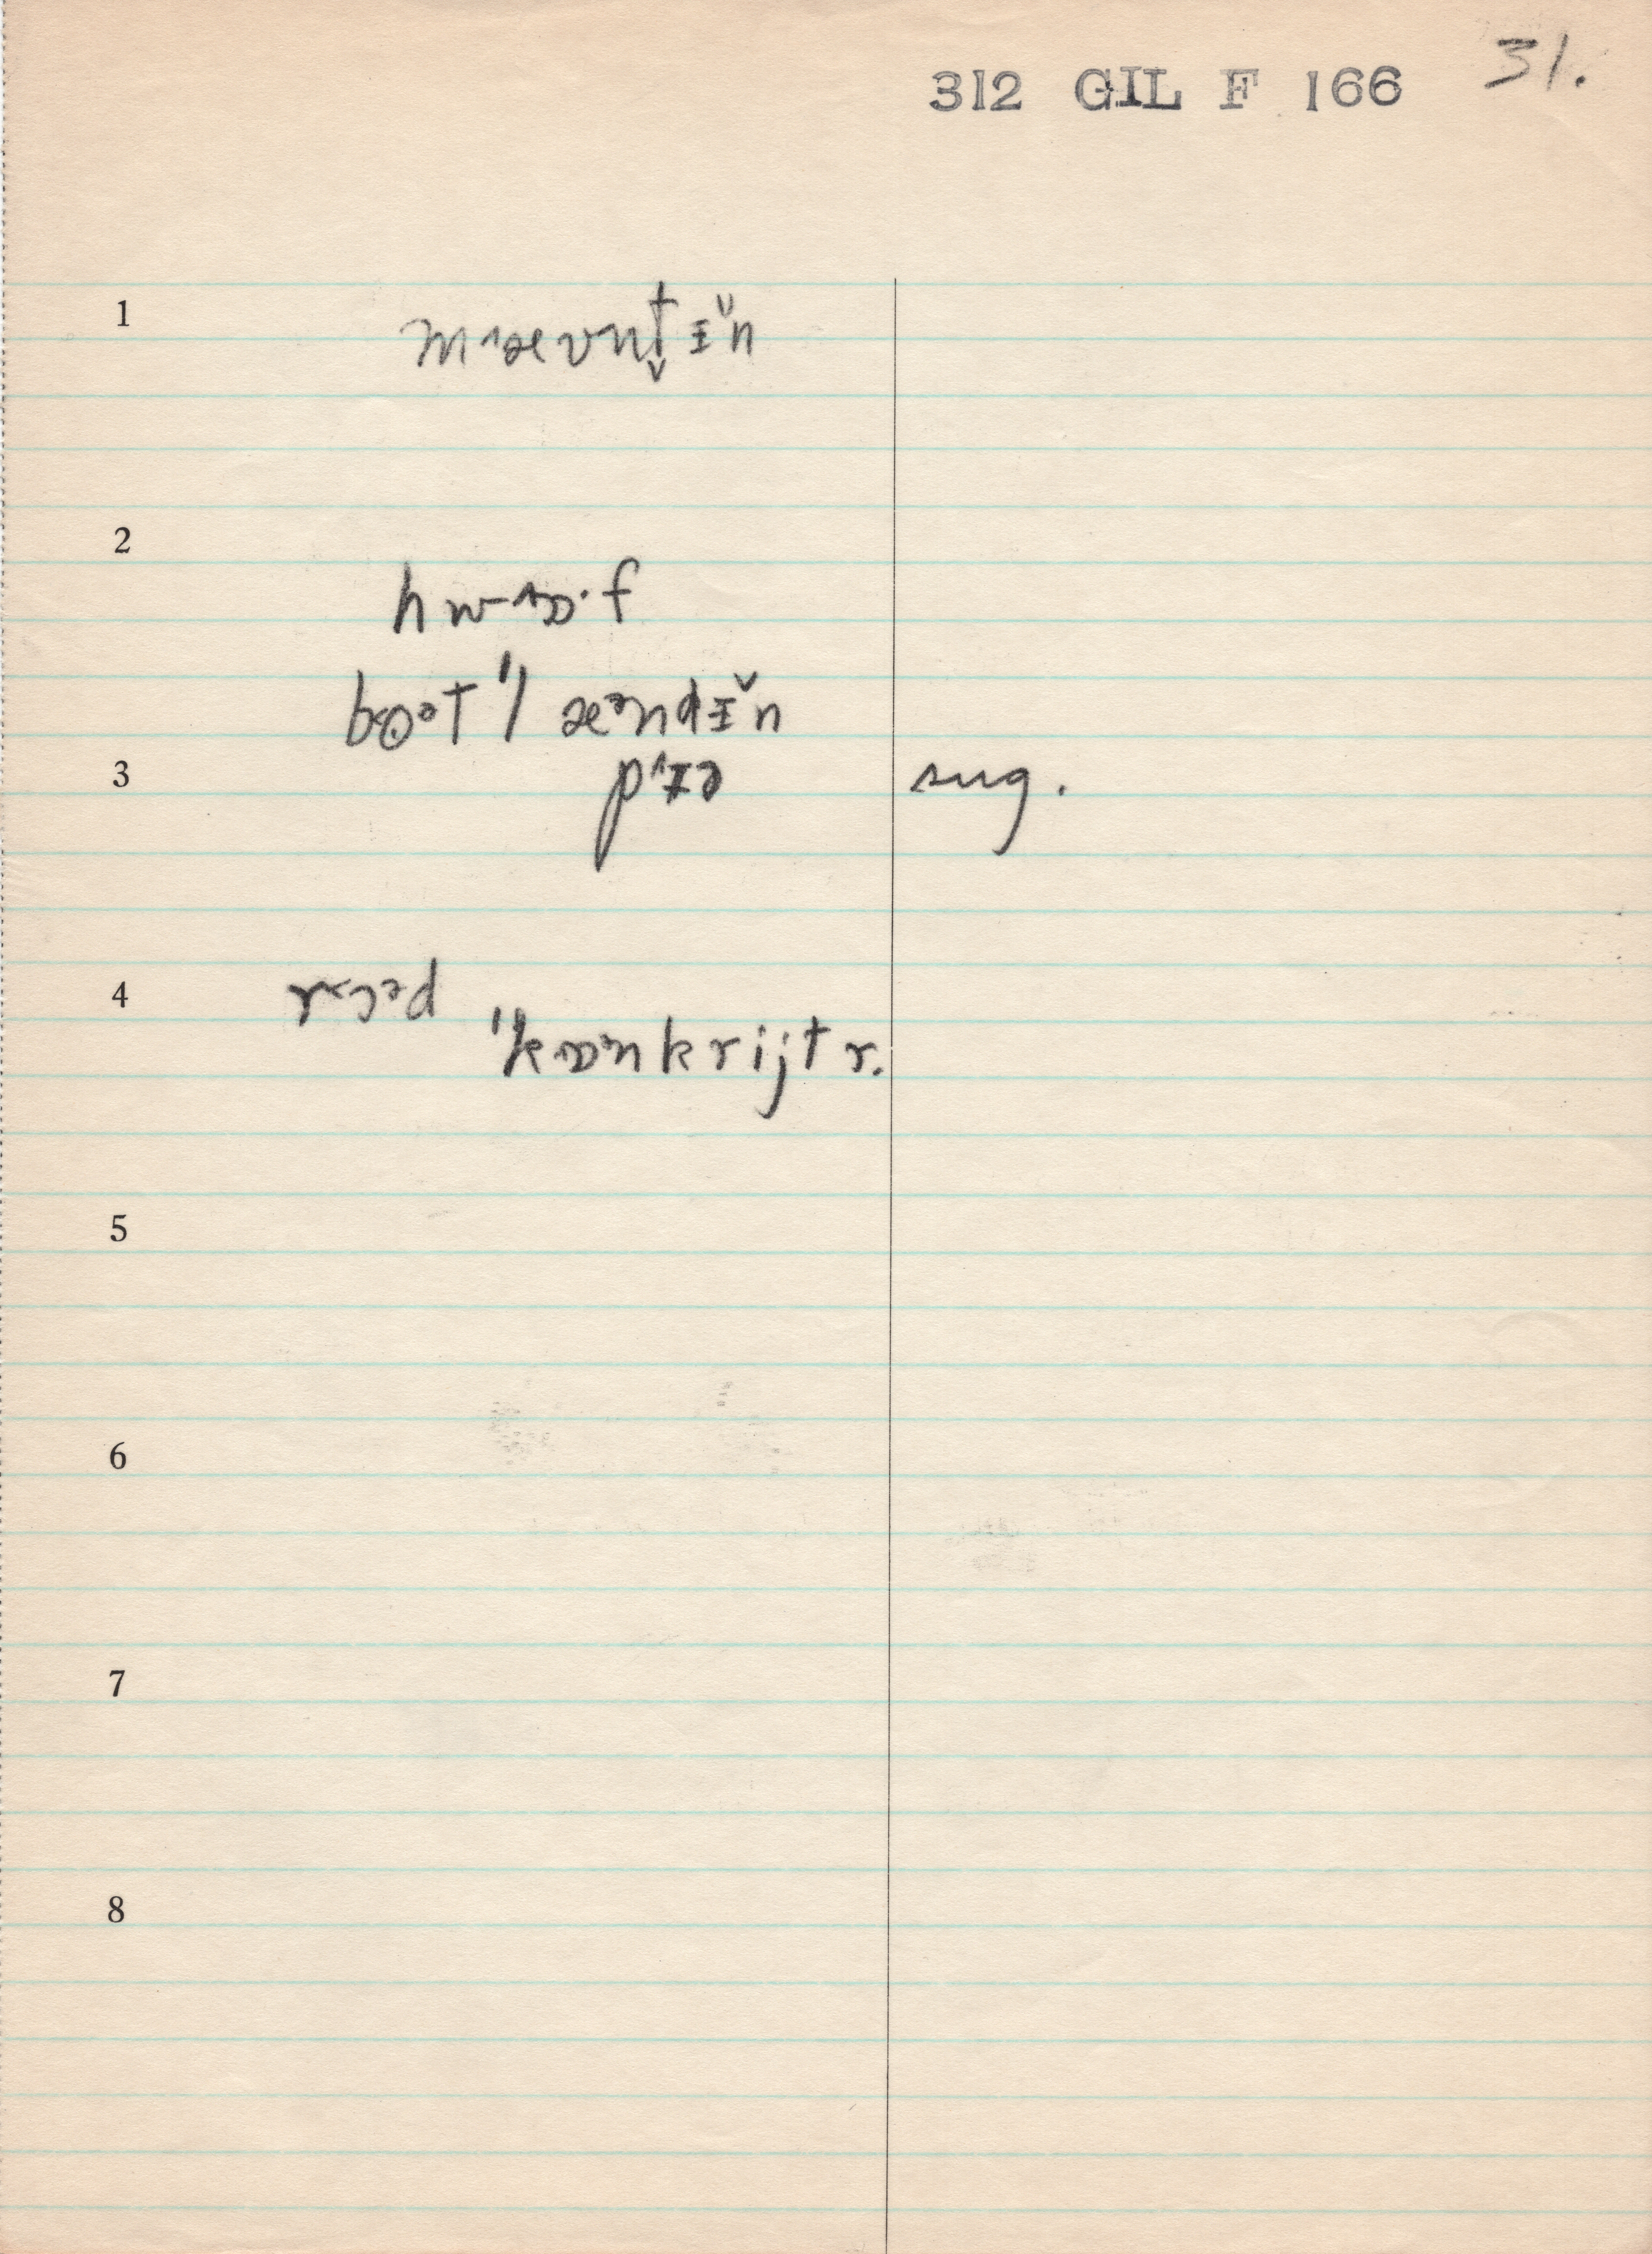 312 GIL F 166 31.
1 m˄æʊnt̬ᵻ̆n
2
hw-˄ɒ·f
bo˂ət ˈˈlæᵊndᵻ̆n
3 p˄ɪə sug.
4 r˃ɔᵊd
ˈˈkɒᵊnkrijt r.
5
6
7
8